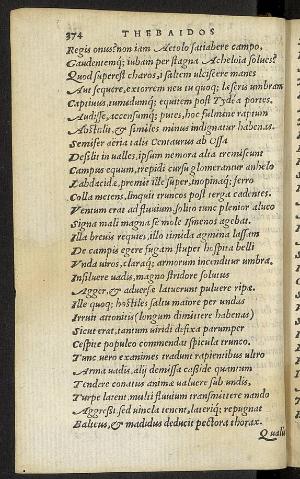 374 THEBAIDOS
Regis onus? non iam Aetolo satiabere campo,
Gaudentemq; iubam per stagna Acheloia solues?
Quod superest charos, i saltem ulciscere manes
Aut sequere, extorrem neu tu quoq; laeseris umbram
Captiuus, tumidumq; equitem post Tydea portes.
Audisse, accensumq; putes, hoc fulmine raptum
Abstulit, & similes minus indignatur habenas.
Semifer aeria talis Centaurus ab Ossa
Desilit in ualles, ipsum nemora alta tremiscunt
Campus equum, trepidi cursu glomerantur anhelo
Labdacidae, premit ille super, inopinaq; ferro
Colla metens, linquit truncos post terga cadentes.
Ventum erat ad fluuium, solito tunc plenior alueo
Signa mali magna se mole Ismenos agebat.
Illa breuis requies, illo timida agmina lassam
De campis egere fugam, stuper hospita belli
Vnda uiros, claraq; armorum incenditur umbra.
Insiluere uadis, magno stridore solutus
Agger, & aduersae latuerunt puluere ripae.
Ille quoq; hostiles saltu maiore per undas
Irruit attonitis (longum dimittere habenas)
Sicut erat, tantum uiridi defixa parumper
Cespite populeo commendat spicula trunco.
Tunc uero exanimes tradunt rapientibus ultro
Arma uadis, alij demissa casside quantum
Tendere conatus anima ualuere sub undis,
Turpe latent, multi fluuium transmittere nando
Aggressi, sed uincla tenent, lateriq; repugnat
Balteus, & madidus deducit pectora thorax.
Qualis